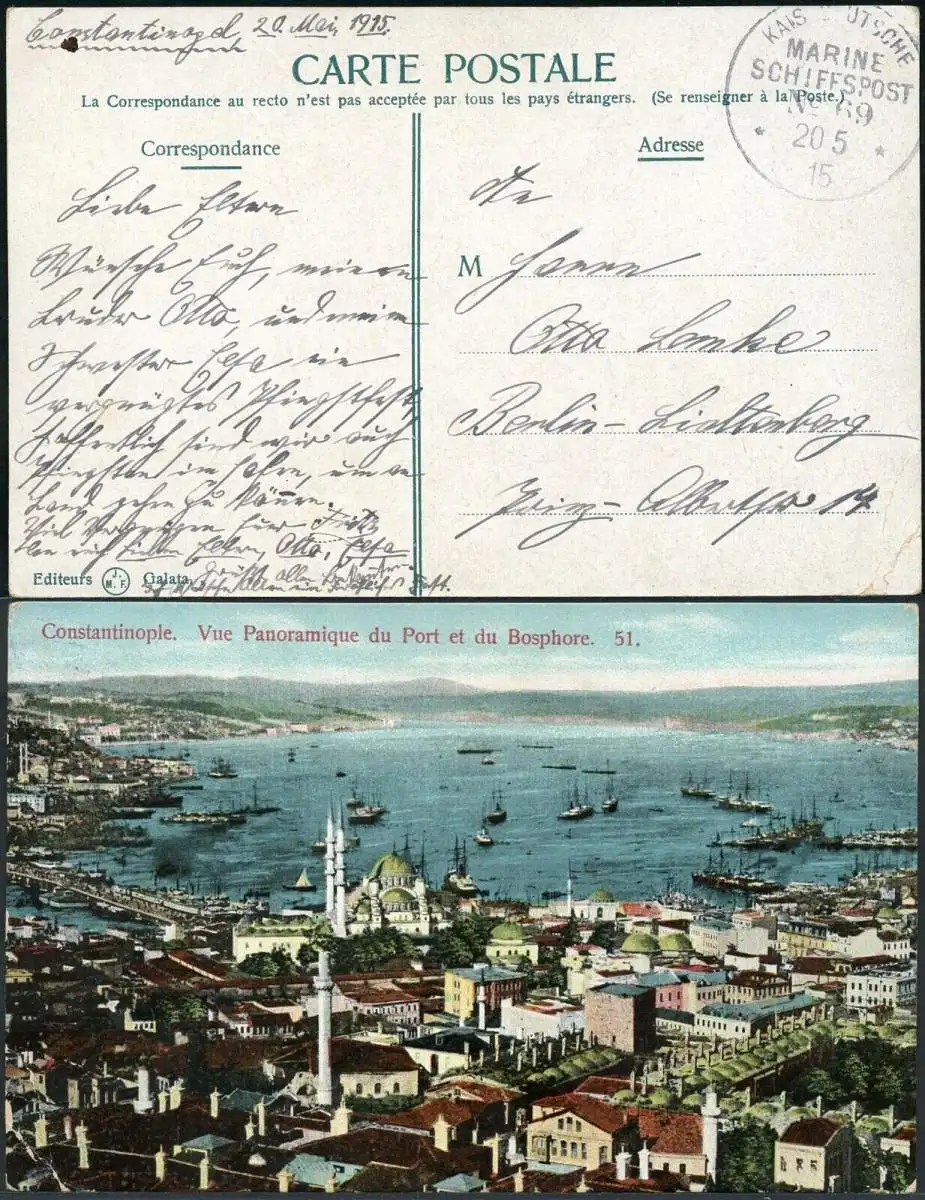 Constantinopel, 20. Mai, 1915.
CARTE POSTALE
La Correspondance au recto n'est pas acceptée par tous les pays étrangers. (Se renseigner à la Poste.)
KAIS. DEUTSCHE
MARINE
SCHIFFSPOST
No 69
20 5
15
Correspondance
Liebe Eltern
Wünsche Euch, meinen
Bruder Otto, und meine
Schwester Elsa ein
vergnügtes Pfingstfest,
hoffentlich sind wir auch
Pfingsten im Hafen, um an
Land gehen zu können.
Viel Vergnügen Euer Fritz
Eltern, Otto, Elsa
Editeurs J. M. F. Galata
Adresse
An
M Herrn
Otto Lemke
Berlin-Lichtenberg
Prinz-Albertstr 14
Constantinople. Vue Panoramique du Port et du Bosphore. 51.